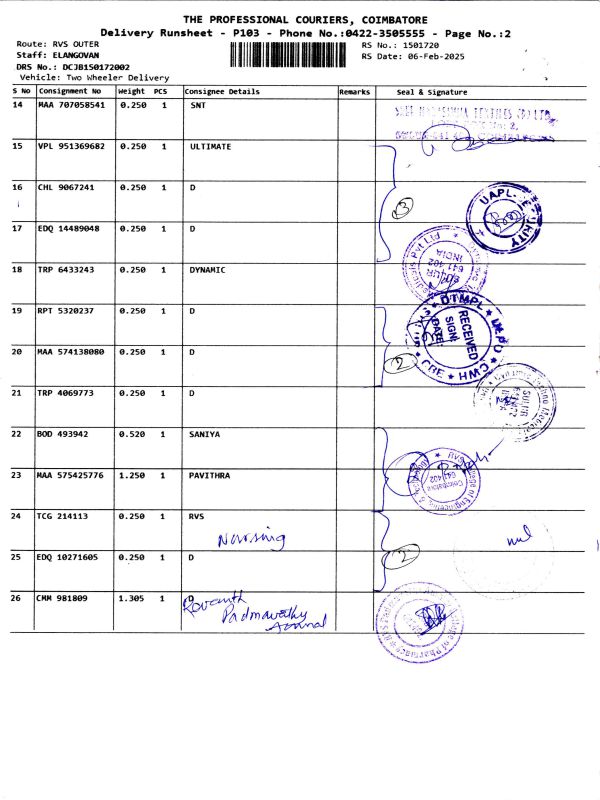 THE PROFESSIONAL COURIERS, COIMBATORE
Delivery Runsheet - P103 - Phone No.:0422-3505555 - Page No.:2
Route: RVS OUTER
RS No.: 1501720
Staff: ELANGOVAN
RS Date: 06-Feb-2025
DRS No.: DCJB150172002
Vehicle: Two Wheeler Delivery
S No Consignment No Weight PCS Consignee Details Remarks Seal & Signature
14 MAA 707058541 0.250 1 SNT
15 VPL 951369682 0.250 1 ULTIMATE
16 CHL 9067241 0.250 1 D
3
UAPL
17 EDQ 14489048 0.250 1 D
641 402
INDIA
18 TRP 6433243 0.250 1 DYNAMIC
19 RPT 5320237 0.250 1 D
DTMPL
RECEIVED
SIGN:
DATE:
CBE ★ HMC
20 MAA 574138080 0.250 1 D
2
21 TRP 4069773 0.250 1 D
SULUR
22 BOD 493942 0.520 1 SANIYA
23 MAA 575425776 1.250 1 PAVITHRA
RVS
Coimbatore
641 402
24 TCG 214113 0.250 1 RVS
Nursing
25 EDQ 10271605 0.250 1 D
2
26 CMM 981809 1.305 1 D
Padmavathy